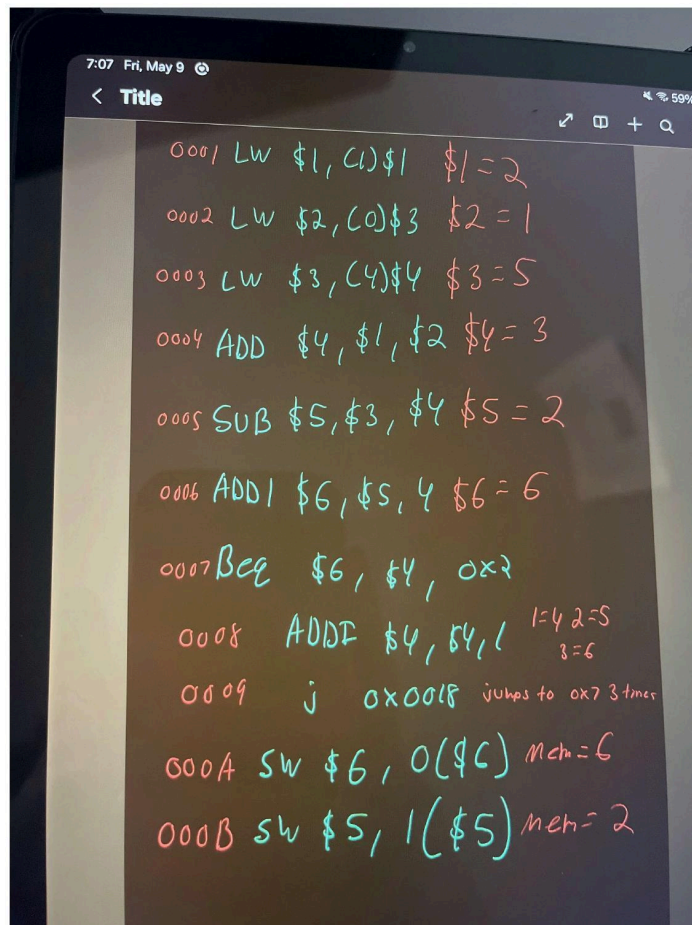 7:07 Fri, May 9
59%
< Title
0001 LW $1, (1)$1 $1=2
0002 LW $2, (0)$3 $2=1
0003 LW $3, (4)$4 $3=5
0004 ADD $4, $1, $2 $4=3
0005 SUB $5, $3, $4 $5=2
0006 ADDI $6, $5, 4 $6=6
0007 Beq $6, $4, 0x2
0008 ADDI $4, $4, 1 1=4 2=5
3=6
0009 j 0x0018 jumps to 0x7 3 times
000A SW $6, 0($6) Mem=6
000B SW $5, 1($5) Mem=2